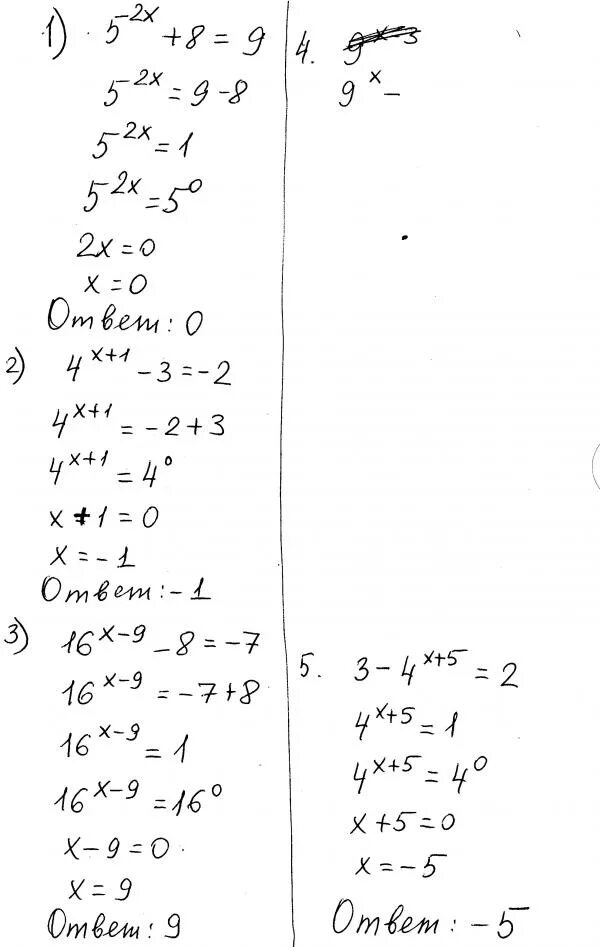 1) 5^{2x} + 8 = 9
5^{2x} = 9 - 8
5^{2x} = 1
5^{2x} = 5^0
2x = 0
x = 0
Ответ: 0
2) 4^{x+1} - 3 = -2
4^{x+1} = -2 + 3
4^{x+1} = 4^0
x + 1 = 0
x = -1
Ответ: -1
3) 16^{x-9} - 8 = -7
16^{x-9} = -7 + 8
16^{x-9} = 1
16^{x-9} = 16^0
x - 9 = 0
x = 9
Ответ: 9
4.
9^x -
5. 3 - 4^{x+5} = 2
4^{x+5} = 1
4^{x+5} = 4^0
x + 5 = 0
x = -5
Ответ: -5